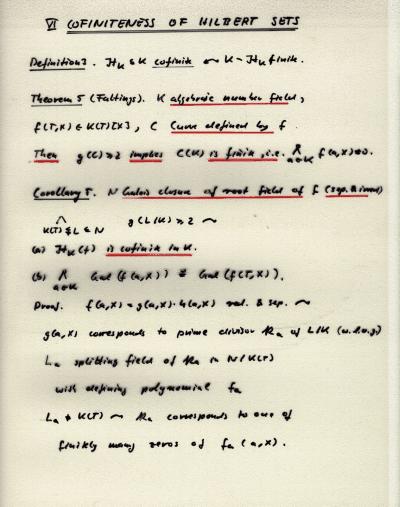 VI COFINITENESS OF HILBERT SETS
Definition 3. H_K ⊆ K cofinite ⤳ K - H_K finite.
Theorem 5 (Faltings). K algebraic number field,
f(T,X) ∈ K(T)[X], C Curve defined by f.
Then g(C) ≥ 2 implies C(K) is finite, i.e. f(a,X)
Corollary 5. N Galois closure of root field of f (sep. & irred)
K(T) ⊊ L ⊆ N g(L/K) ≥ 2 ⤳
(a) H_K(f) is cofinite in K.
(b) Gal(f(a,X)) ≅ Gal(f(T,X)).
Proof. f(a,X) = g(a,X)·h(a,X) red. & sep. ⤳
g(a,X) corresponds to prime divisor of L/K (w.l.o.g.)
L_a splitting field of in N/K(T)
with defining polynomial f_a
L_a ≠ K(T) ⤳ corresponds to one of
finitely many zeros of f_a(a,X).